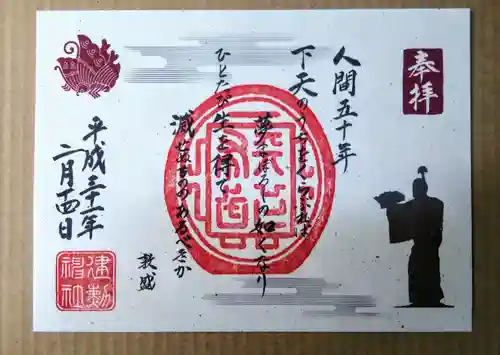 奉拝
人間五十年
下天のうちをくらぶれば
夢まぼろしの如くなり
ひとたび生を得て
滅せぬもののあるべきか
敦盛
平成三十一年
二月十四日
建勲
神社